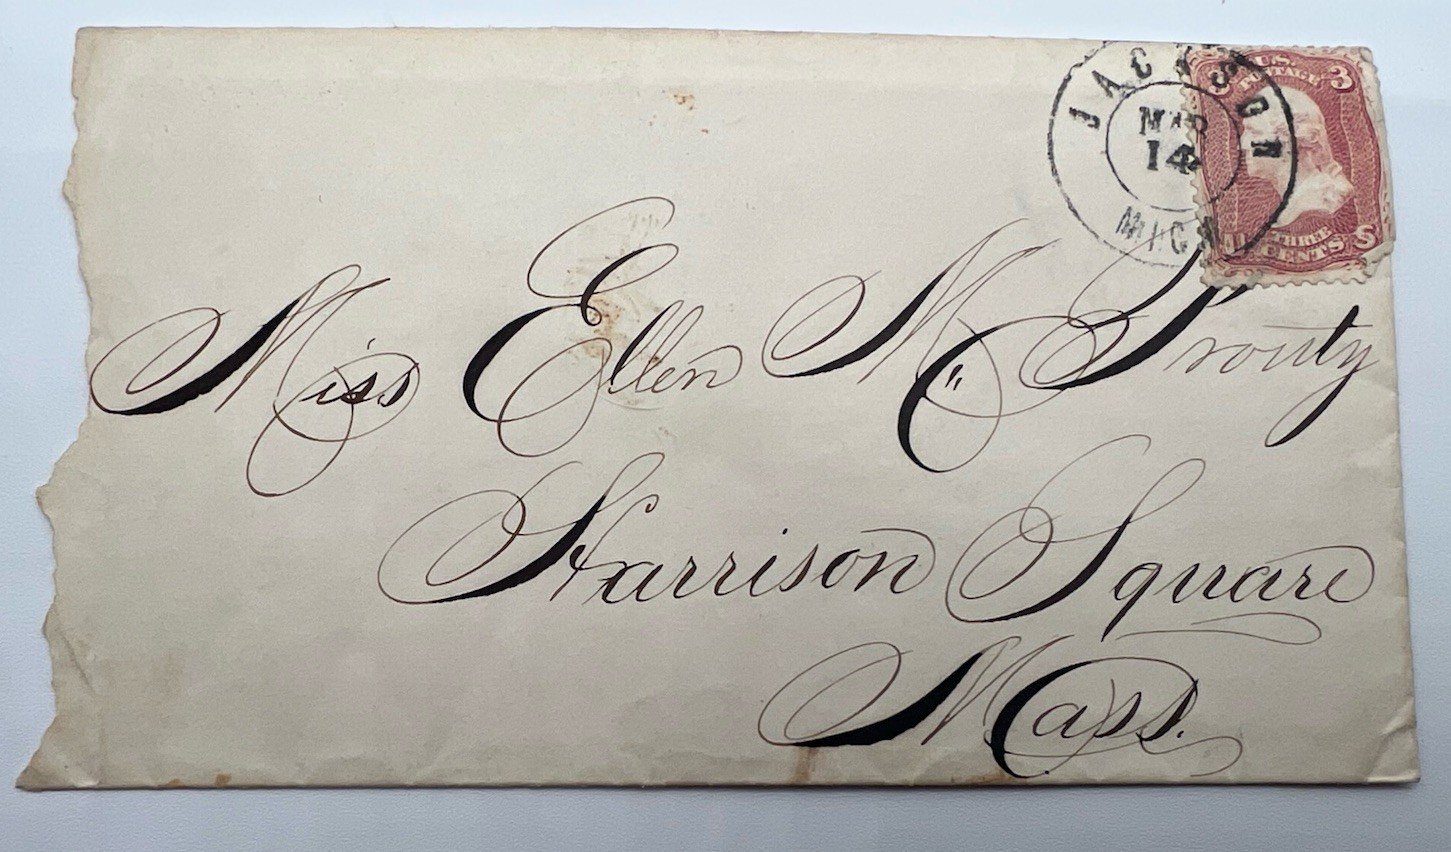 JACKSON
MAR
14
MICH
U.S. 3
POSTAGE
THREE
CENTS
Miss Ellen M. Prouty
Harrison Square
Mass.